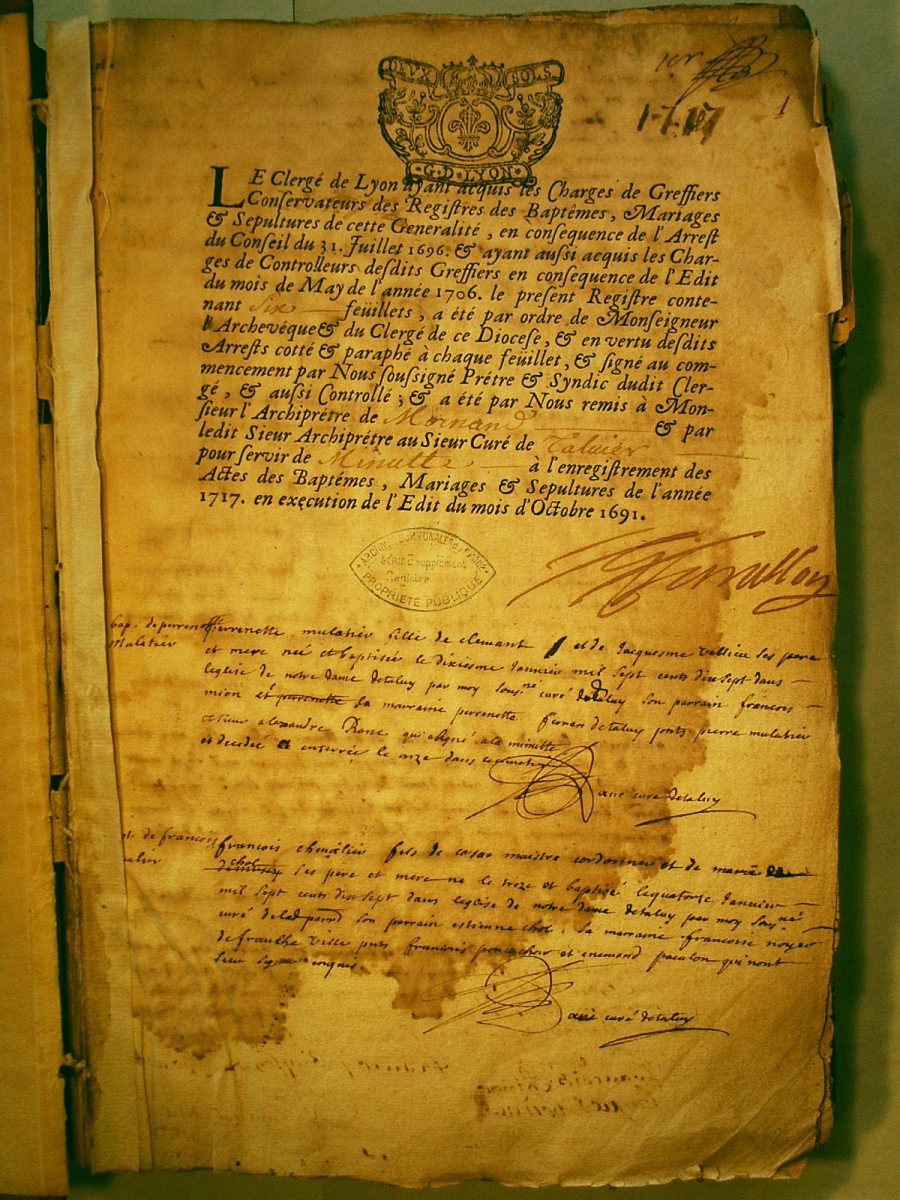 DEUX SOLS
G·D·LYON
1717
1
LE Clergé de Lyon ayant acquis les Charges de Greffiers
Conservateurs des Registres des Baptêmes, Mariages
& Sepultures de cette Generalité, en consequence de l'Arrest
du Conseil du 31. Juillet 1696. & ayant aussi acquis les Char-
ges de Controlleurs desdits Greffiers en consequence de l'Edit
du mois de May de l'année 1706. le present Registre conte-
nant six feüillets, a été par ordre de Monseigneur
l'Archevêque & du Clergé de ce Diocese, & en vertu desdits
Arrests cotté & paraphé à chaque feüillet, & signé au com-
mencement par Nous soussigné Prêtre & Syndic dudit Cler-
gé, & aussi Controllé; & a été par Nous remis à Mon-
sieur l'Archiprêtre de Mornand & par
ledit Sieur Archiprêtre au Sieur Curé de Taluier
pour servir de Minutte à l'enregistrement des
Actes des Baptêmes, Mariages & Sepultures de l'année
1717. en execution de l'Edit du mois d'Octobre 1691.
ARCHIVES COMMUNALES
Série E supplément
Registre
PROPRIÉTÉ PUBLIQUE
bap. de perrenette
Mulatier
perrenette mulatier fille de clemant et de Jacquesme vallieu ses pere
et mere née et baptisée le dixiesme Janvier mil sept cents dix sept dans
leglise de notre dame detaluy par moy sous.né curé detaluy son parrain francois
mion et perrenette sa marraine perrenette detaluy pnts pierre mulatier
et sieur alexandre Rane qui a signé a la minutte
et decedée enterrée le onze dans
Rane curé detaluy
de francois
francois chevalier fils de maistre cordonnier et de marie
chol ses pere et mere ne le treze et baptisé le quatorze Janvier
mil sept cents dix sept dans leglise de notre dame detaluy par moy sous.né
curé son parrain estienne chol, sa marraine francoise noyer
de franche ville pnts francois et enemond pacalon qui n'ont
sceu signer enquis.
Rane curé detaluy